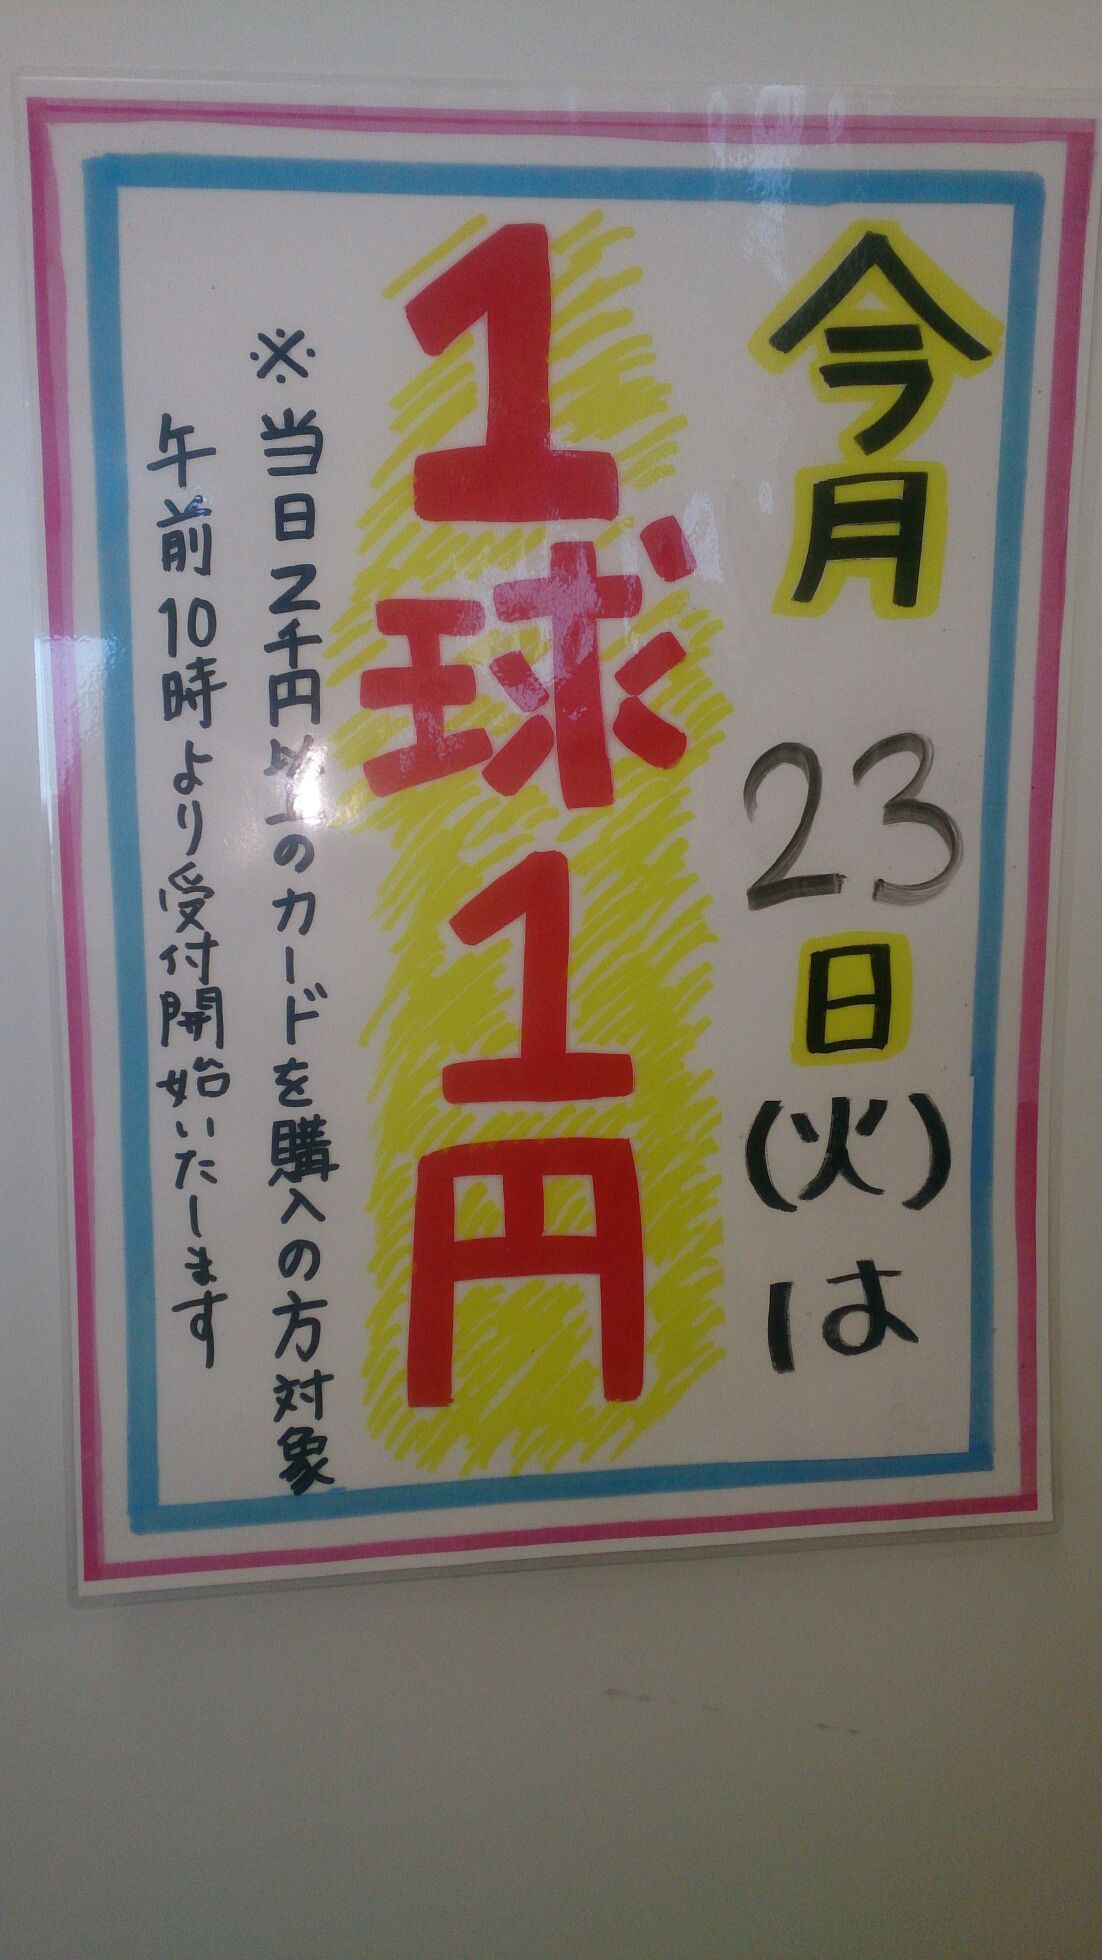 今月 23日(火)は
1球1円
※当日2千円以上のカードを購入の方対象
午前10時より受付開始いたします